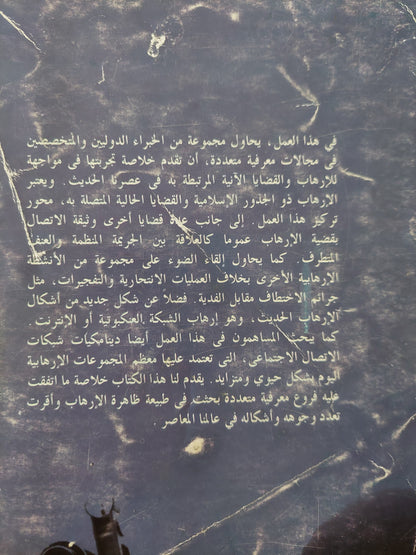 فى هذا العمل، يحاول مجموعة من الخبراء الدوليين والمتخصصين
فى مجالات معرفية متعددة، أن تقدم خلاصة تجربتها فى مواجهة
للإرهاب والقضايا الآنية المرتبطة به فى عصرنا الحديث. ويعتبر
الإرهاب ذو الجذور الإسلامية والقضايا الحالية المتصلة به، محور
تركيز هذا العمل. إلى جانب عدة قضايا أخرى وثيقة الاتصال
بقضية الإرهاب عموما كالعلاقة بين الجريمة المنظمة والعنف
المتطرف. كما يحاول إلقاء الضوء على مجموعة من الأنشطة
الإرهابية الأخرى بخلاف العمليات الانتحارية والتفجيرات، مثل
جرائم الاختطاف مقابل الفدية. فضلاً عن شكل جديد من أشكال
الإرهاب الحديث، وهو إرهاب الشبكة العنكبوتية أو الإنترنت.
كما يبحث المساهمون فى هذا العمل أيضا ديناميكيات شبكات
الاتصال الاجتماعى، التى تعتمد عليها معظم المجموعات الإرهابية
اليوم بشكل حيوي ومتزايد. يقدم لنا هذا الكتاب خلاصة ما اتفقت
عليه فروع معرفية متعددة بحثت فى طبيعة ظاهرة الإرهاب وأقرت
تعدد وجوهه وأشكاله فى عالمنا المعاصر.